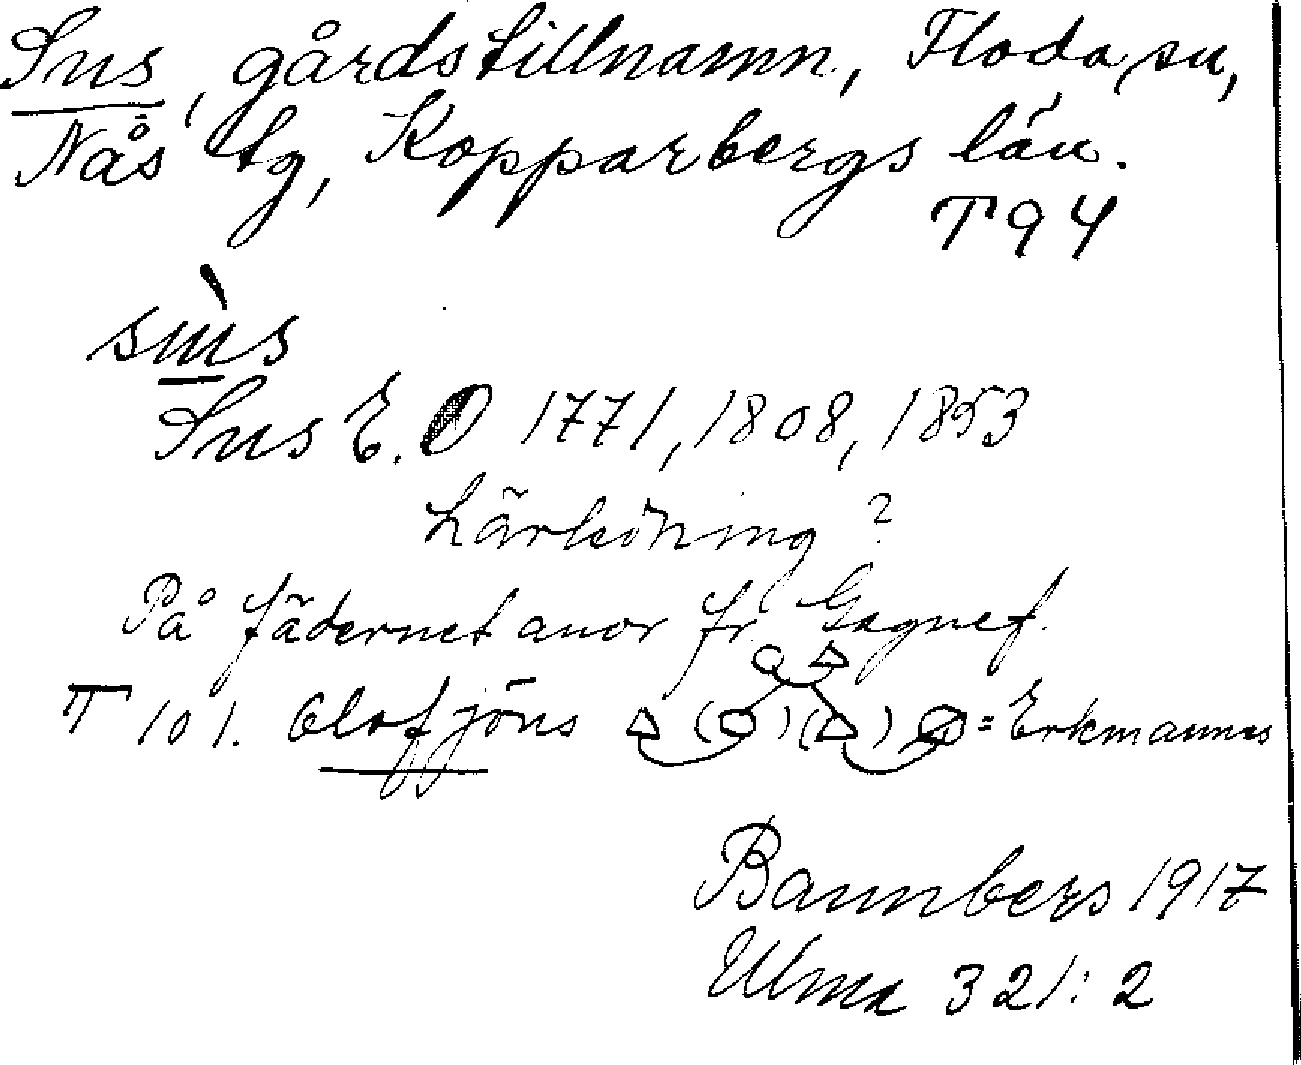 Sus, gårdstillnamn, Floda sn,
Nås tg, Kopparbergs län.
T 94
Sus E. O 1771, 1808, 1853
?
På fädernet anor fr. Gagnef.
T 101. Olofjöns ( ) ( ) = Erkmannes
Bannbers 1917
Ulma 321:2